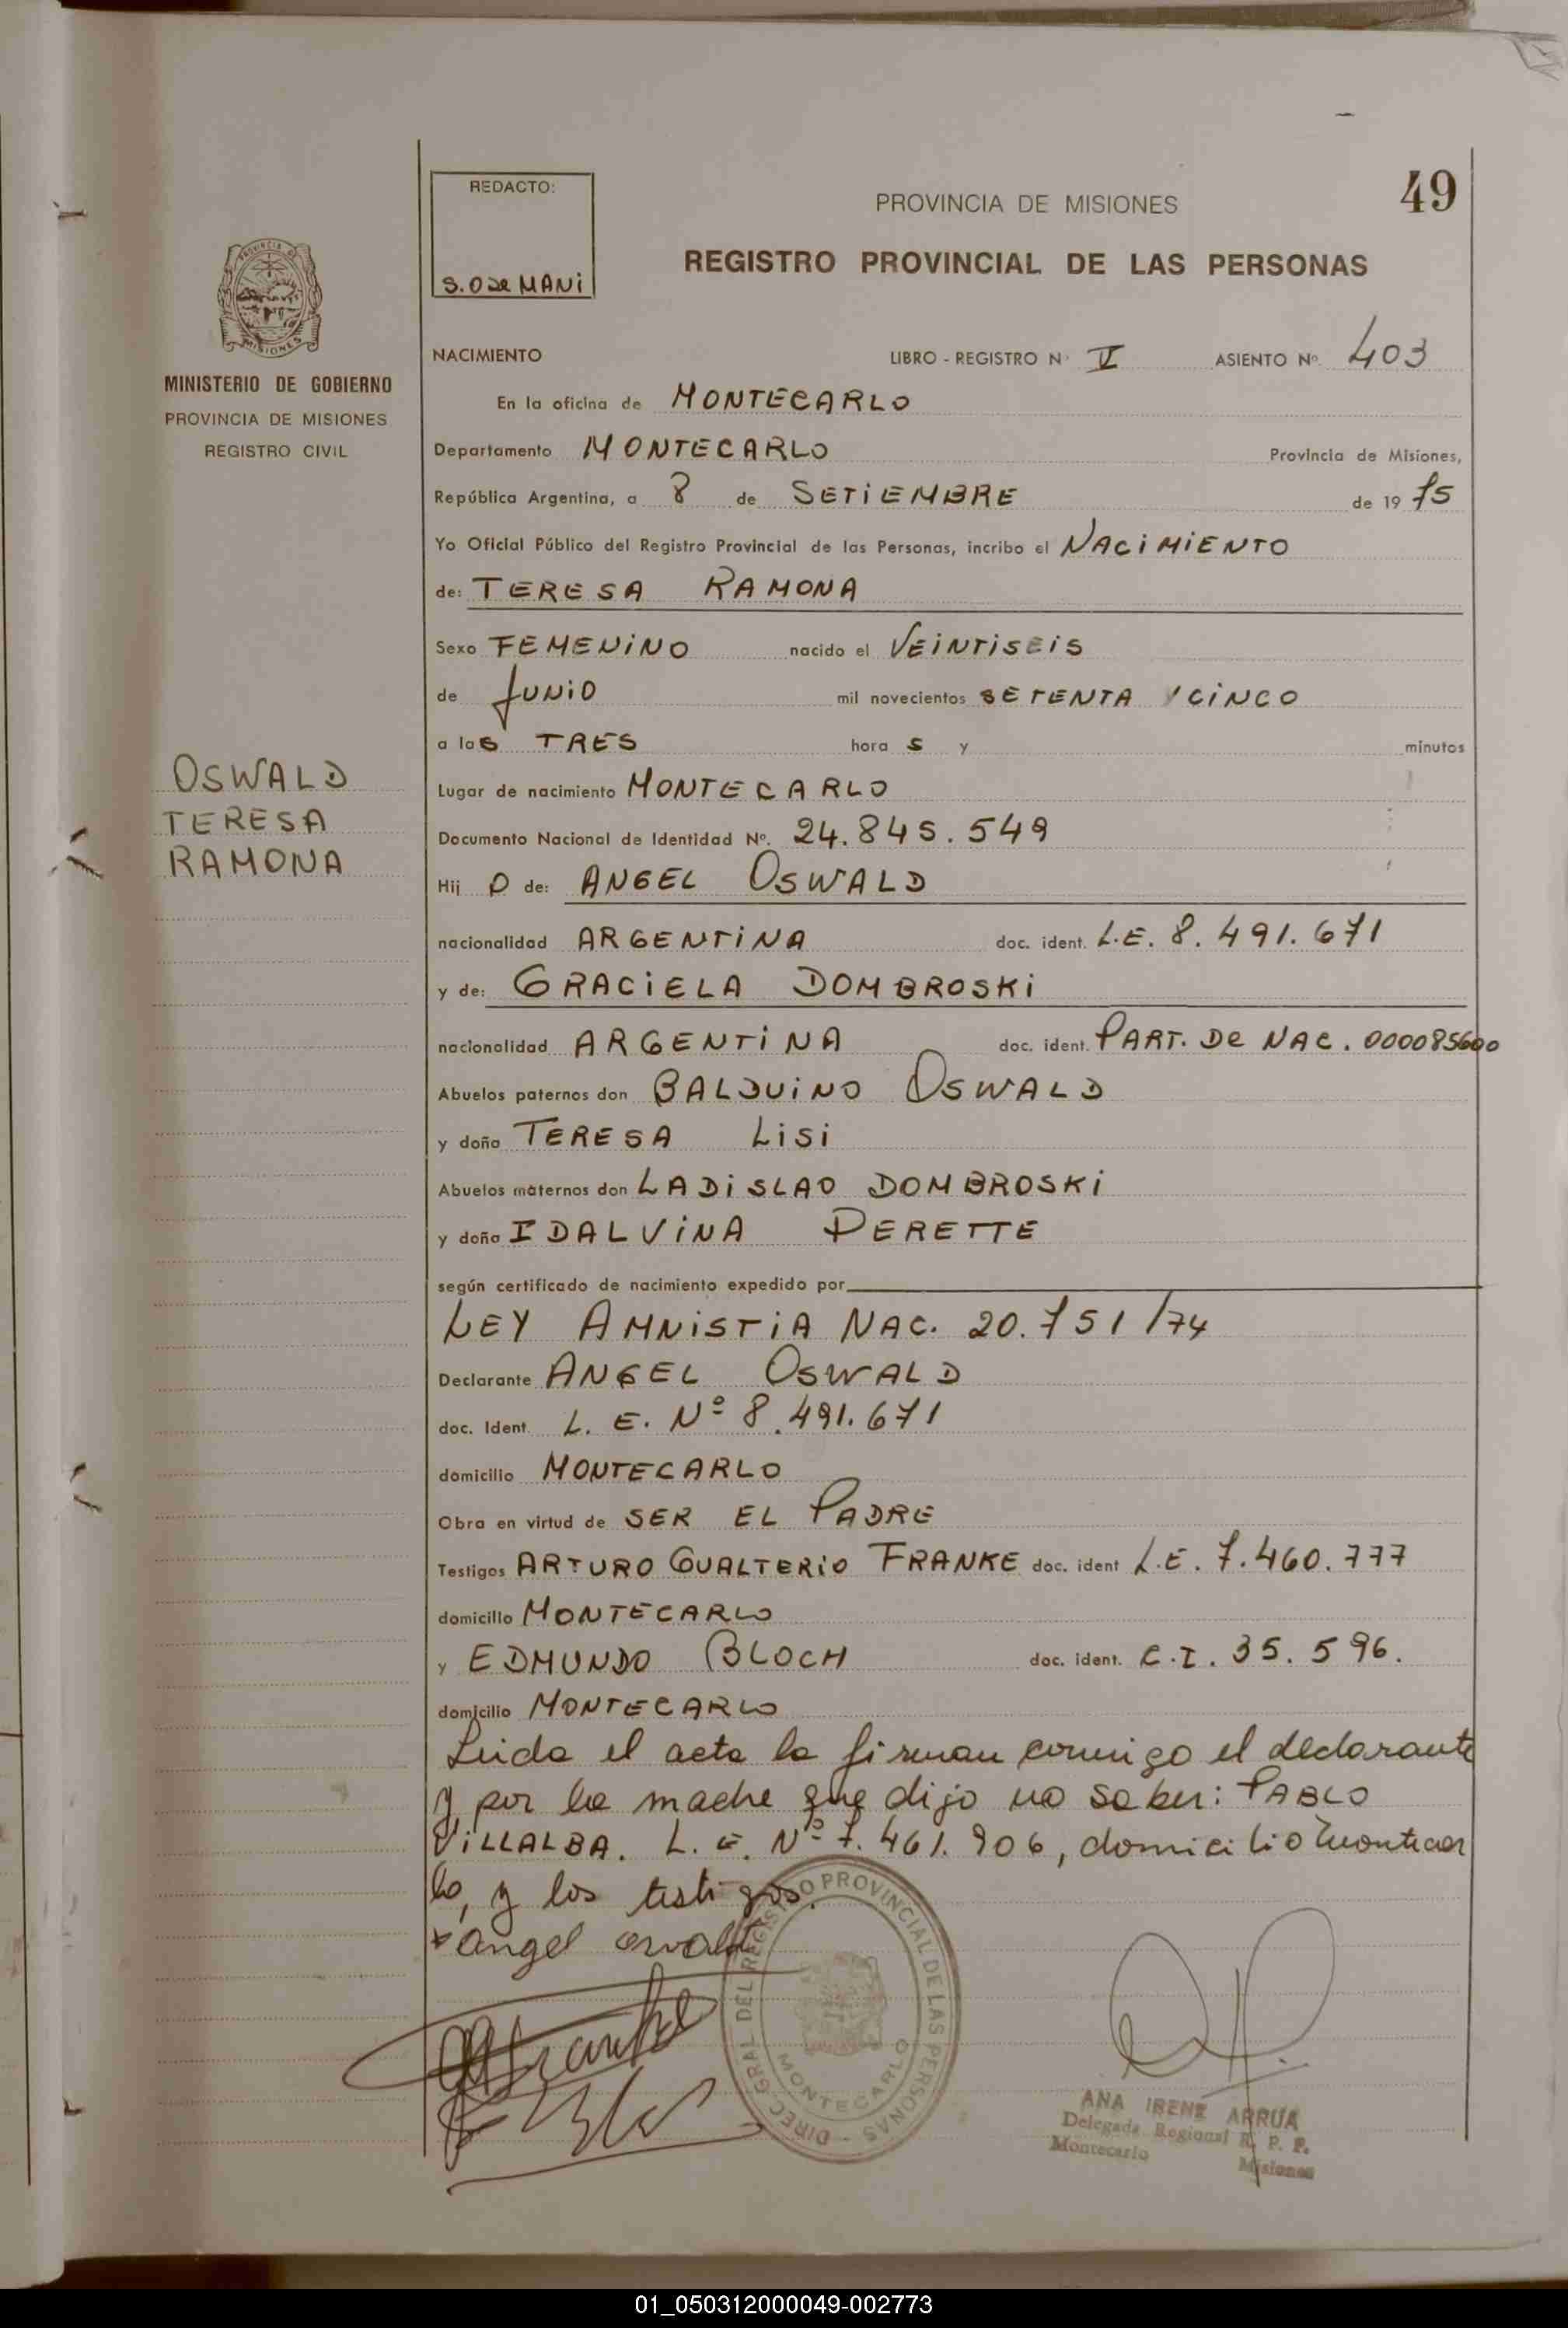 REDACTO:
S.O de MANi
PROVINCIA DE MISIONES
49
REGISTRO PROVINCIAL DE LAS PERSONAS
PROVINCIA DE
MISIONES
MINISTERIO DE GOBIERNO
PROVINCIA DE MISIONES
REGISTRO CIVIL
NACIMIENTO LIBRO - REGISTRO Nº V ASIENTO Nº 403
En la oficina de MONTECARLO
Departamento MONTECARLO Provincia de Misiones,
República Argentina, a 8 de SETiEMBRE de 19 75
Yo Oficial Público del Registro Provincial de las Personas, incribo el NACiMiENTO
de: TERESA RAMONA
Sexo FEMENiNO nacido el VEiNTiSEiS
de JUNiO mil novecientos SETENTA Y CiNCO
a las TRES hora s y minutos
OSWALD
TERESA
RAMONA
Lugar de nacimiento MONTECARLO
Documento Nacional de Identidad Nº. 24.845.549
Hij A de: ANGEL OSWALD
nacionalidad ARGENTiNA doc. ident. L.E. 8.491.671
y de: GRACiELA DOMBROSKi
nacionalidad ARGENTiNA doc. ident. PART. De NAC. 000085600
Abuelos paternos don BALDUiNO OSWALD
y doña TERESA LiSi
Abuelos maternos don LADiSLAO DOMBROSKi
y doña IDALViNA PERETTE
según certificado de nacimiento expedido por
LEY AMNiSTiA NAC. 20.751/74
Declarante ANGEL OSWALD
doc. Ident. L. E. Nº 8.491.671
domicilio MONTECARLO
Obra en virtud de SER EL PADRE
Testigos ARTURO GUALTERiO FRANKE doc. ident L.E. 7.460.777
domicilio MONTECARLO
y EDMUNDO BLOCH doc. ident. C.I. 35.596.
domicilio MONTECARLO
Leida el acta la firman conmigo el declarante
y por la madre que dijo no saber: PABLO
ViLLALBA. L.E. Nº 7.461.906, domicilio Montecar
lo, y los testigos.
angel oswald
DIREC. GRAL. DEL REGISTRO PROVINCIAL DE LAS PERSONAS
MONTECARLO
ANA IRENE ARRUA
Delegada Regional R. P. P.
Montecarlo Misiones
01_050312000049-002773